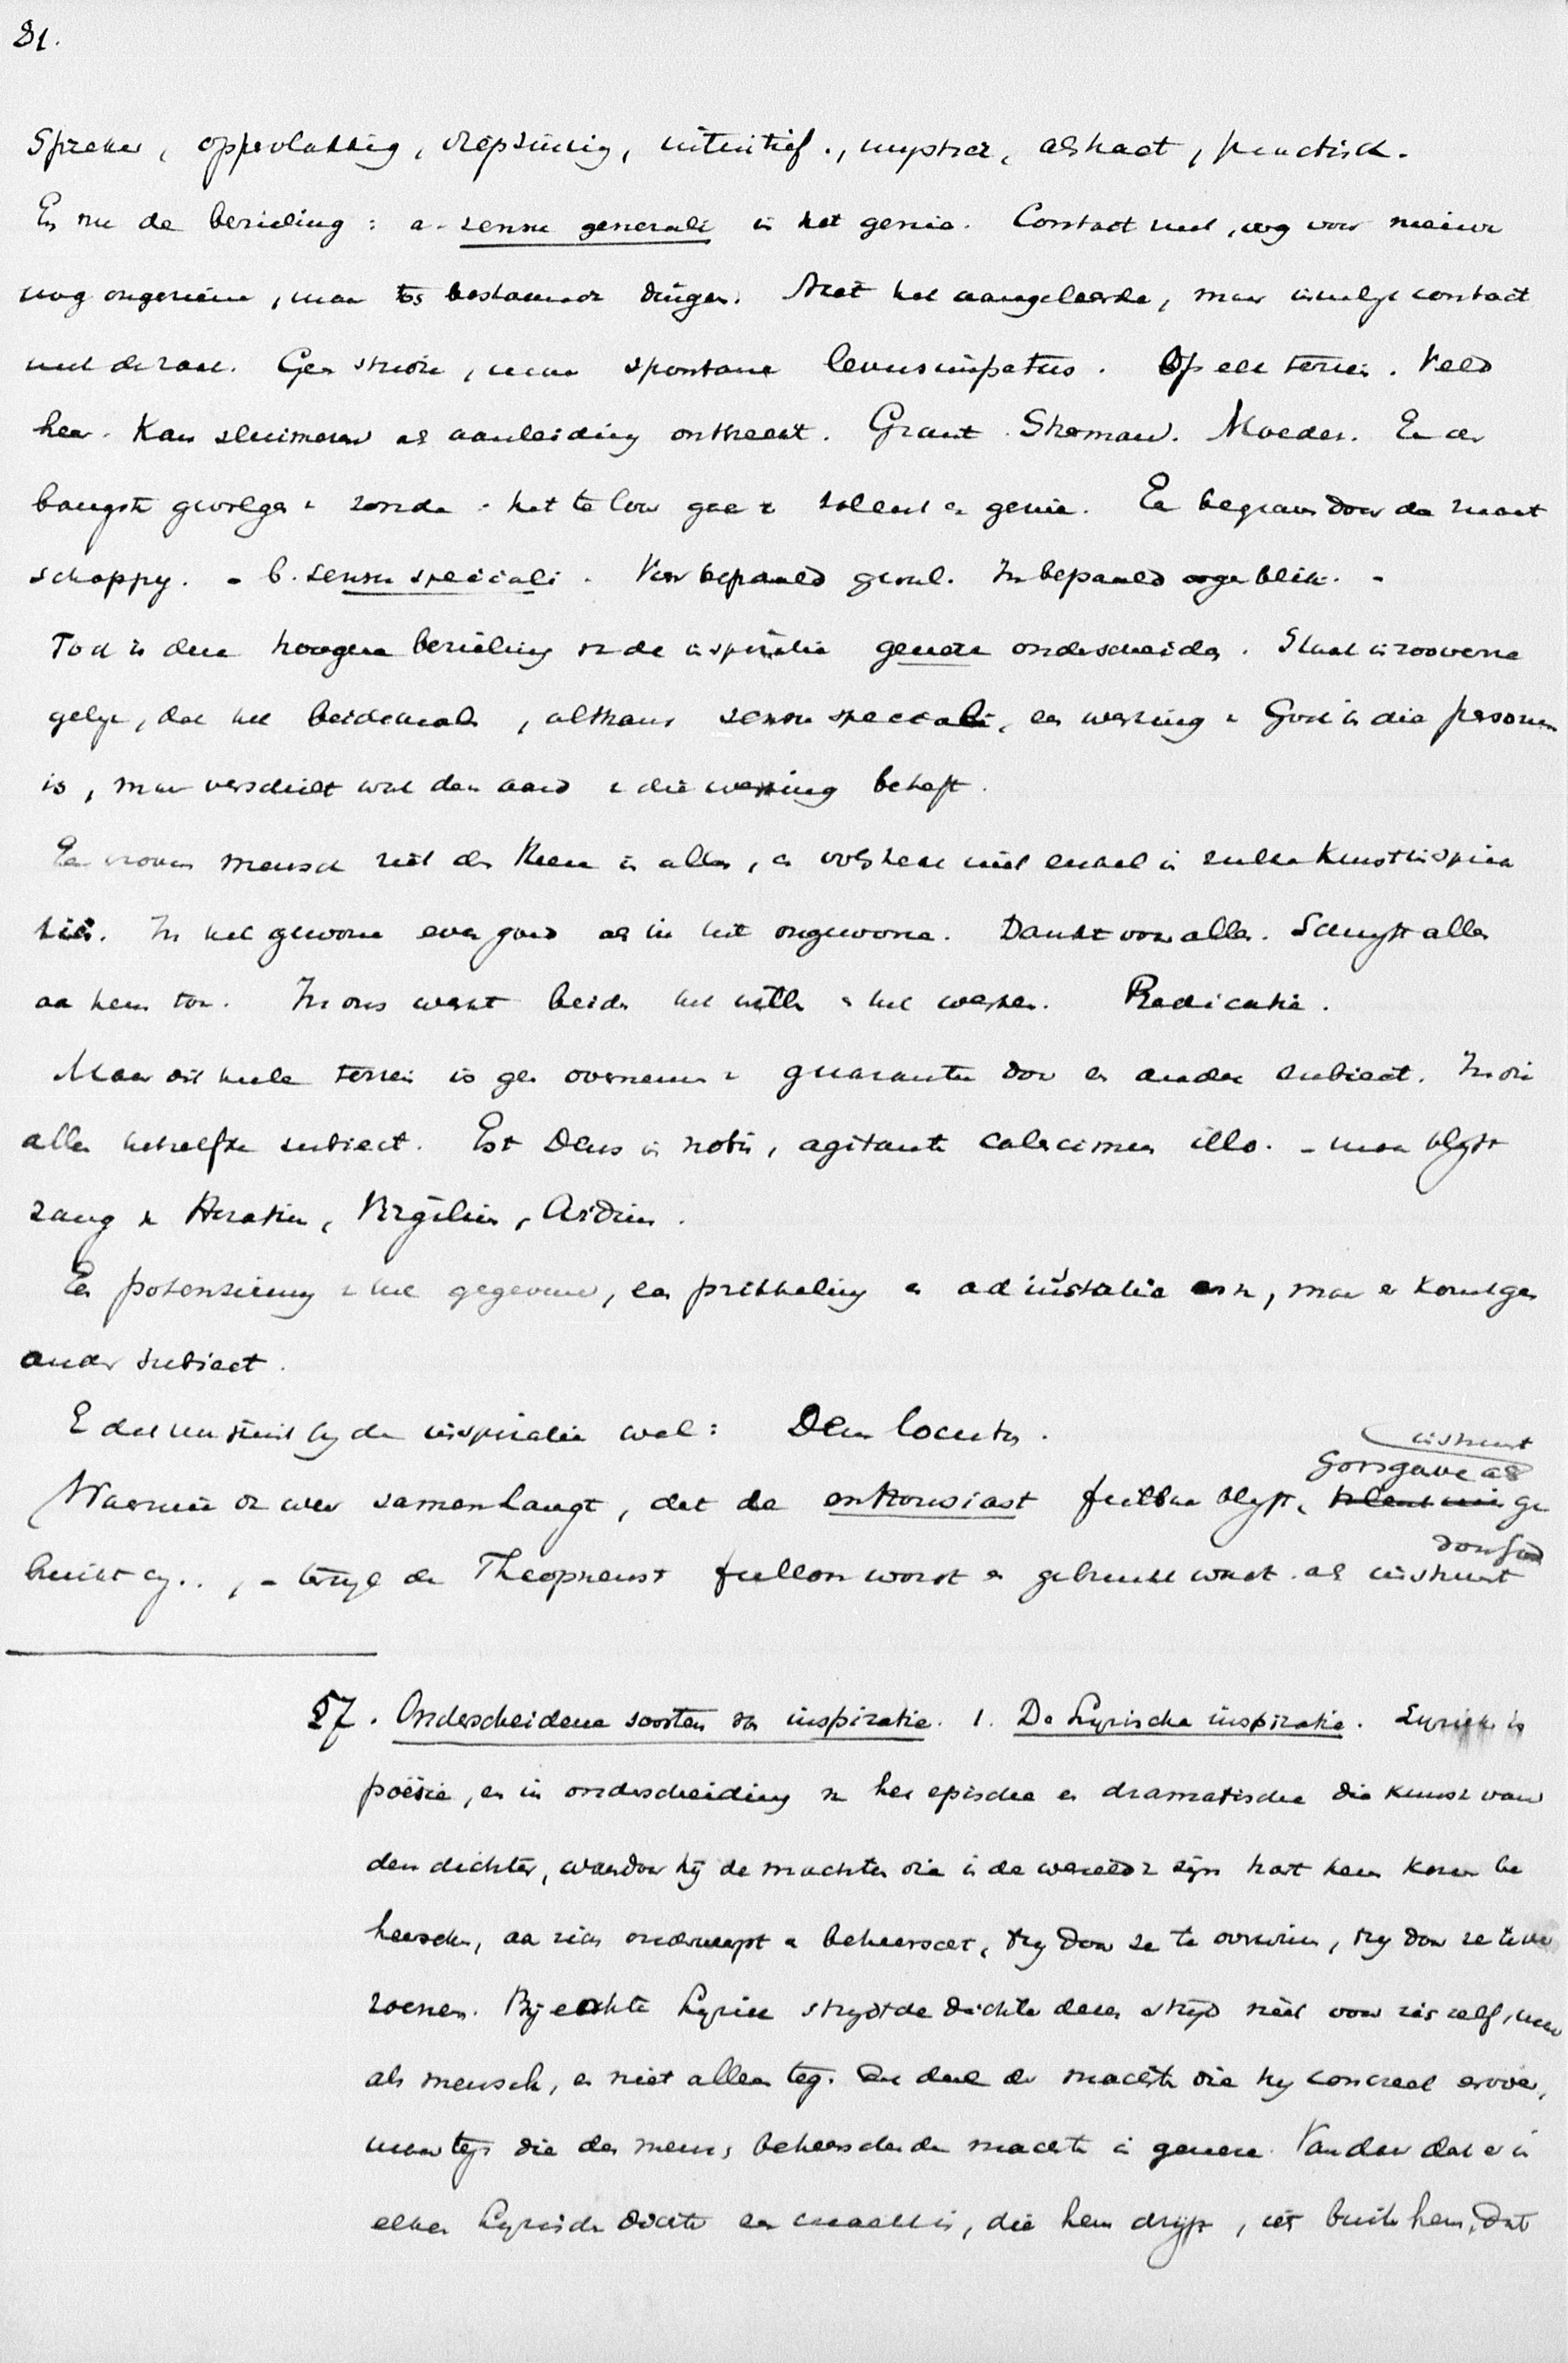 81.
Spreker, oppervlakkig, diepzinnig, intuitief., mystiek, abstract, practisch.
En nu de bezieling: a. sensu generali is het genie. Contact met, oog voor nieuwe
nog ongeziene, maar tos bestaande dingen. Niet het aangeleerde, maar contact
met de zaak. Geen studie, maar spontane levensimpetus. Op elk terrein. Veld
heer. Kan sluimeren als aanleiding ontbreekt. Grant. Sherman. Moeder. En de
bangste gevolgen zonde. het te loor gaan talent en genie. En begraven door de maat
schappy. - b. sensu speciali. Voor bepaald geval. In bepaald oogenblik. -
Toch is deze hoogere bezieling v. de inspiratie genere onderscheiden. Staat in zooverre
gelyk, dat het beidemaal, althans sensu speciali, een werking v God in die personen
is, maar verschilt wat den aard v die werking betreft.
Een vroom mensch ziet den Heere in alles, en volstrekt niet enkel in zulke Kunstinspira
tiën. In het gewone even goed als in het ongewone. Dankt voor alles. Schryft alles
aan hem toe. In ons werkt beide het willen en het werken. Predicatie.
Maar dit heele terrein is geen overnemen v garantie door een ander subiect. In die
alles hetzelfde subiect. Est Deus in nobis, agitante calescimus illo. - maar blyft
zang v Horatius, Virgilius, Ovidius.
Een potenziering v het gegevene, een prikkeling en adiustatie ervan, maar er komt geen
ander subiect.
En dat nu juist by de inspiratie wel: Deus locutus.
Waarmee dan weer samenhangt, dat de enthousiast feilbaar blyft, Godsgave als instrument ge
bruikt by.., - terwyl de Theopneust feilloos wordt en gebruikt wordt als instrument door God
§7. Onderscheidene soorten van inspiratie. 1. De Lyrische inspiratie. Lyriek is
poësie, en in onderscheiding van het epische en dramatische die kunst van
den dichter, waardoor hij de machten die in de wereld v zijn hart hem komen be
heerschen, aan zich onderwerpt en beheerscht, 'tzy door ze te overwinnen, 'tzy door ze te ver
zoenen. Bij echte Lyriek strydt de dichter dezen strijd niet voor zich zelf, maar
als mensch, en niet alleen tegen dat deel der machten die hy concreet ervoer,
maar tegen die den mensch beheerschende machten in genere. Vandaar dat er in
elken Lyrischen dichter een macht is, die hem drijft, iets buiten hem, dat